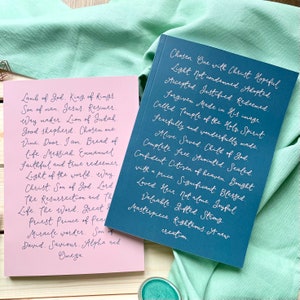 Lamb of God. King of Kings
Son of man. Jesus. Redeemer
Way maker. Lion of Judah
Good shepherd. Chosen one
Vine. Door. I am. Bread of
Life. Messiah. Emmanuel
Faithful and true redeemer
Light of the world. Way
Christ. Son of God. Lord
The Resurrection and The
Life. The Word. Great
Priest. Prince of Peace
Miracle worker. Son of
David. Saviour. Alpha and
Omega
Chosen. One with Christ. Hopeful
Light. Not condemned. Adopted
Accepted. Justified. Redeemed
Forgiven. Made in His image
Called. Temple of the Holy Spirit
Fearfully and wonderfully made
Alive. Saved. Child of God
Complete. Free. Anointed. Sealed
Confident. Citizen of heaven. Bought
with a price. Significant. Blessed
Loved. His. Not alone. Joyful
Valuable. Gifted. Strong
Masterpiece. Righteous. A new
creation